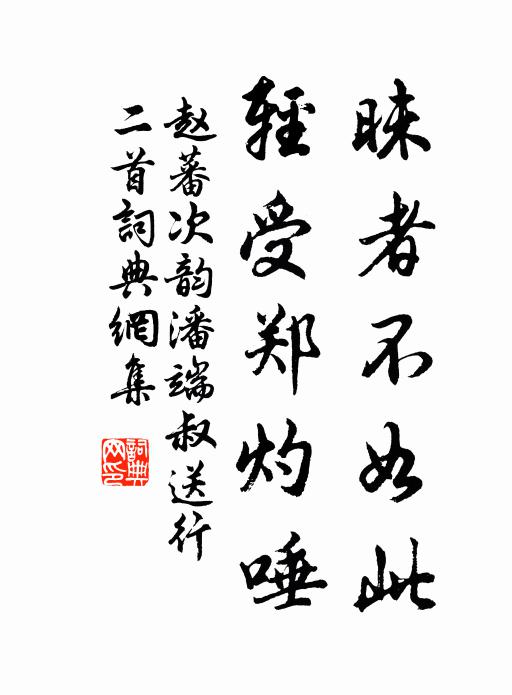 睐者不如此
輕受郑灼唾
赵蕃次韵潘端叔送行
二首詞典網集
詞典
网印